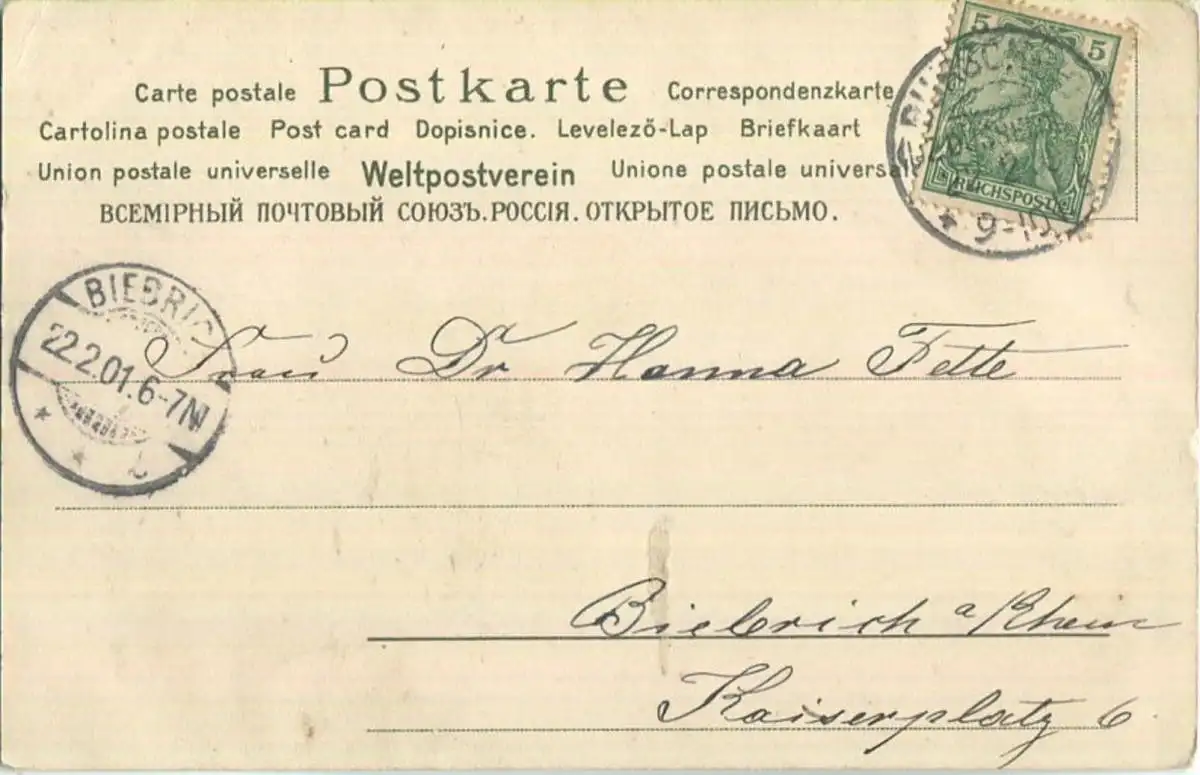 Carte postale Postkarte Correspondenzkarte
Cartolina postale Post card Dopisnice. Levelező-Lap Briefkaart
Union postale universelle Weltpostverein Unione postale
ВСЕМІРНЫЙ ПОЧТОВЫЙ СОЮЗЪ.РОССІЯ. ОТКРЫТОЕ ПИСЬМО.
5 5
REICHSPOST
9-10
BIEBRICH
22.2.01.6-7N
Frau Dr Hanna Fette
Biebrich a/Rhein
Kaiserplatz 6